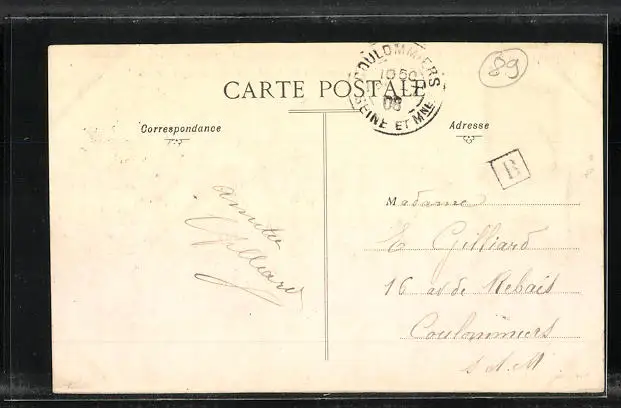 CARTE POSTALE
COULOMMIERS
10 50
08
SEINE ET MNE
89
Correspondance
Adresse
B
Madame
E Gilliard
16 av de Rebais
Coulommiers
S. & M.
amitiés
Gilliard